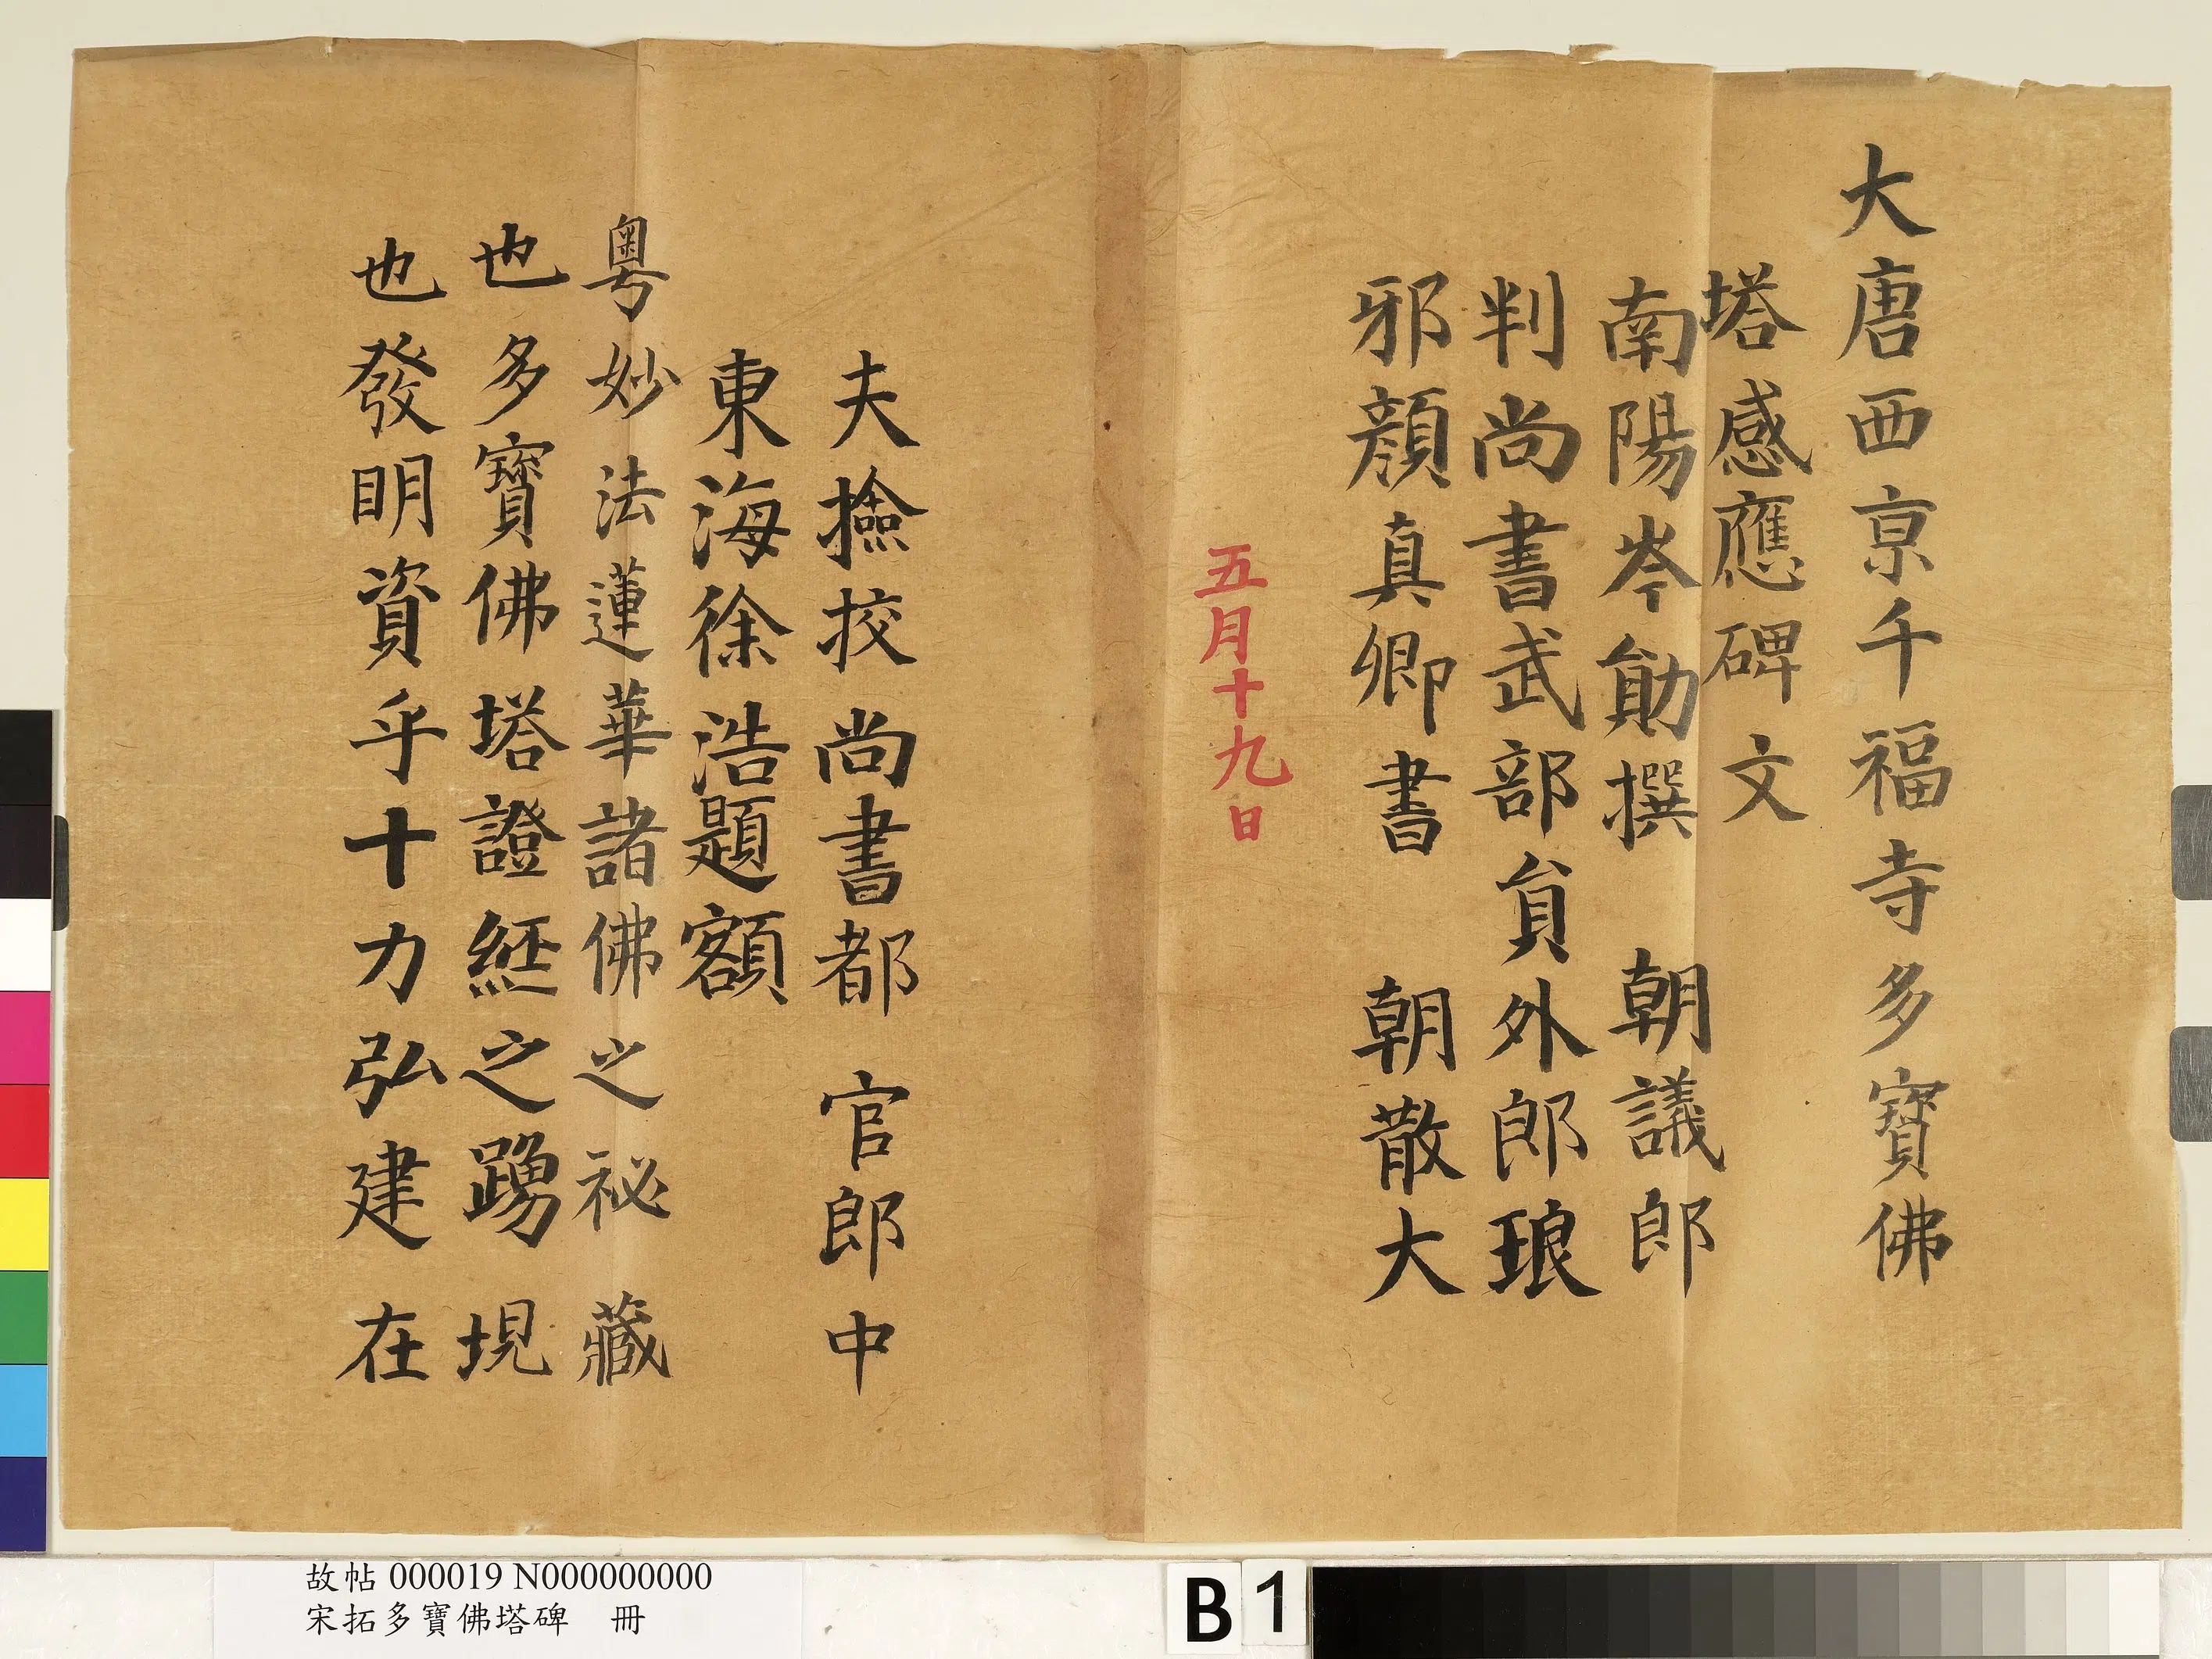 大唐西京千福寺多寶佛
塔感應碑文
南陽岑勛撰 朝議郎
判尚書武部貟外郎琅
邪顏真卿書 朝散大
五月十九日
夫撿挍尚書都官郎中
東海徐浩題額
粵妙法蓮華諸佛之祕藏
也多寶佛塔證經之踴現
也發明資乎十力弘建在
故帖 000019 N000000000
宋拓多寶佛塔碑 冊
B 1